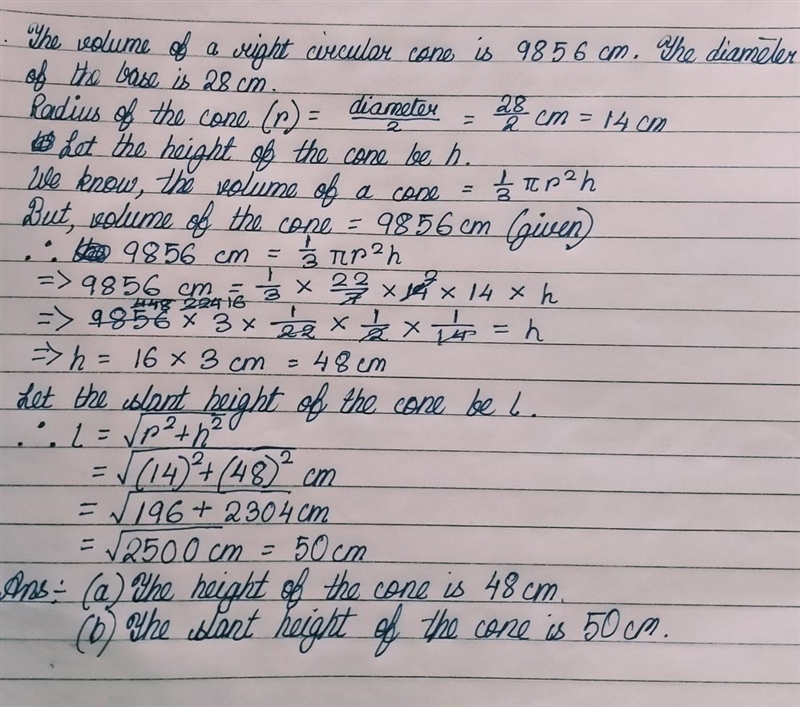 . The volume of a right circular cone is 9856 cm. The diameter
of the base is 28 cm.
Radius of the cone (r) = diameter/2 = 28/2 cm = 14 cm
Let the height of the cone be h.
We know, the volume of a cone = 1/3 πr²h
But, volume of the cone = 9856 cm (given)
∴ 9856 cm = 1/3 πr²h
=> 9856 cm = 1/3 × 22/7 × 14 2 × 14 × h
448 224 16
=> 9856 × 3 × 1/22 × 1/2 × 1/14 = h
=> h = 16 × 3 cm = 48 cm
Let the slant height of the cone be l.
∴ l = √r²+h²
= √(14)²+(48)² cm
= √196 + 2304 cm
= √2500 cm = 50 cm
Ans:- (a) The height of the cone is 48 cm.
(b) The slant height of the cone is 50 cm.